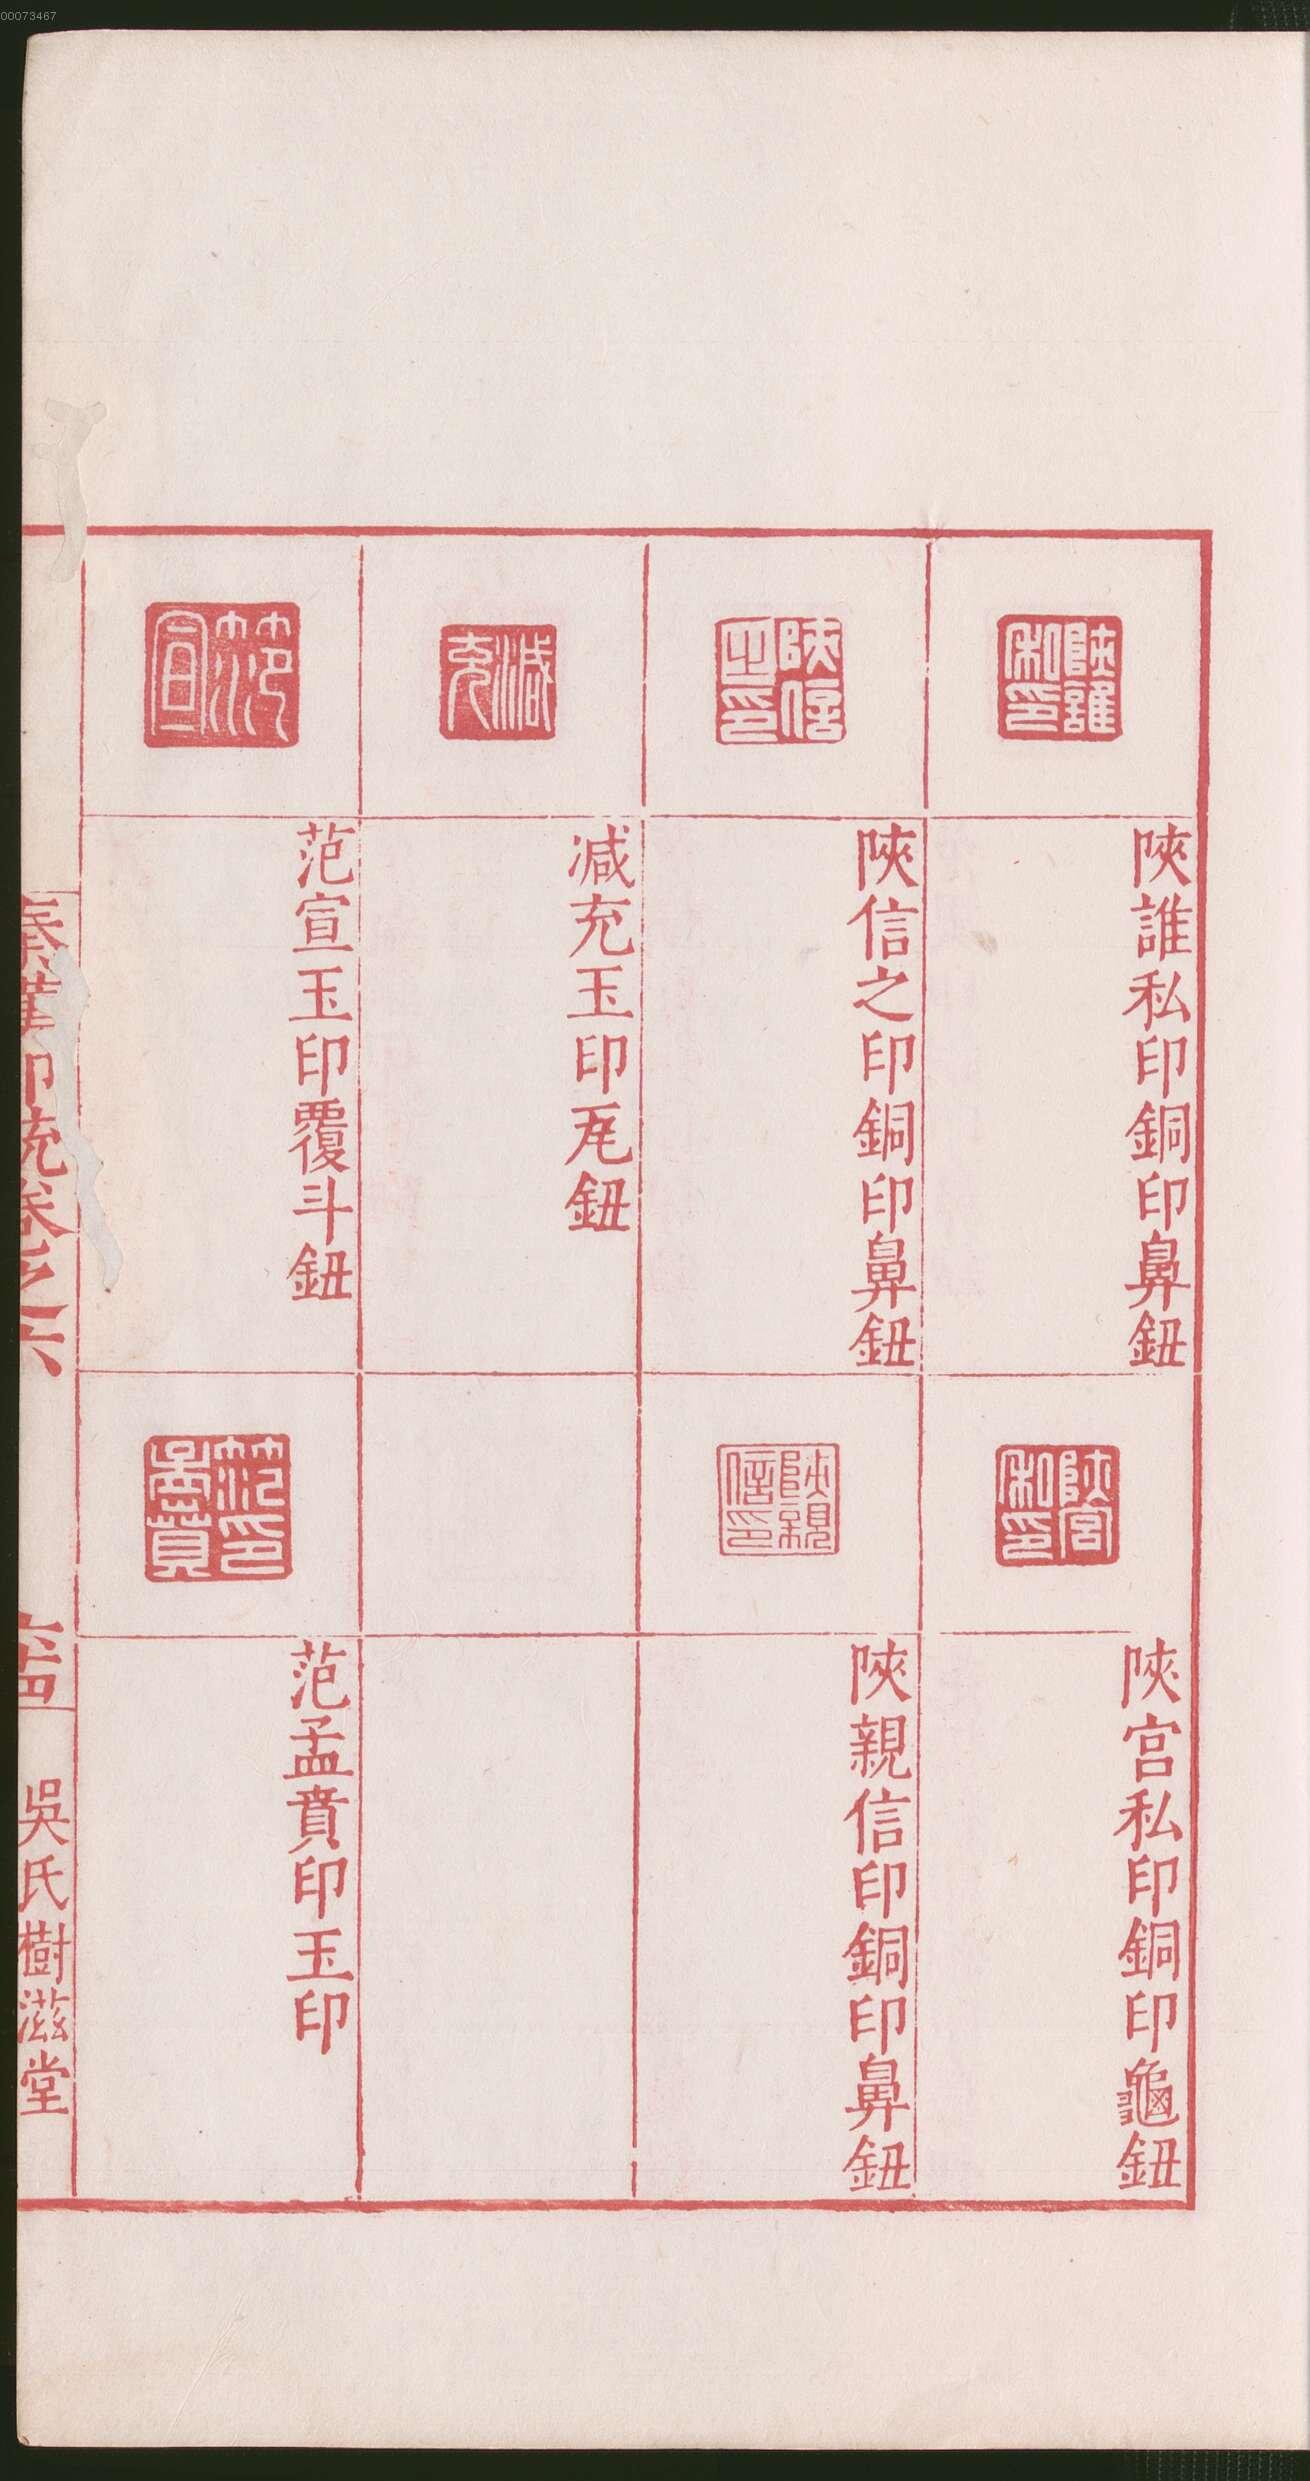 00073467
陝誰私印
陝誰私印銅印鼻鈕
陝宮私印
陝宮私印銅印龜鈕
陝信之印
陝信之印銅印鼻鈕
陝親信印
陝親信印銅印鼻鈕
減充
減充玉印瓦鈕
范宣
范宣玉印覆斗鈕
范印孟賁
范孟賁印玉印
秦漢印統卷之六
六十四
吳氏樹滋堂